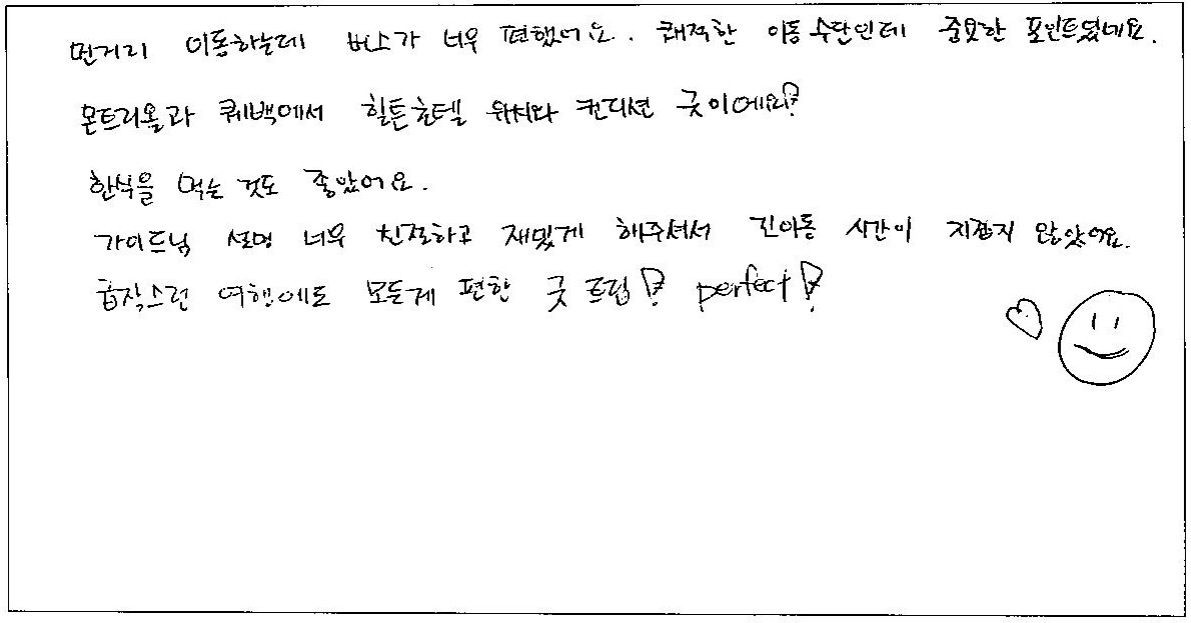 먼거리 이동하는데 버스가 너무 편했어요. 쾌적한 이동수단인데 중요한 포인트였네요.
몬트리올과 퀘백에서 힐튼호텔 위치와 컨디션 굿이에요!
한식을 먹는 것도 좋았어요.
가이드님 설명 너무 친절하고 재밌게 해주셔서 긴이동 시간이 지겹지 않았어요.
갑작스런 여행에도 모든게 편한 굿 트립! perfect!